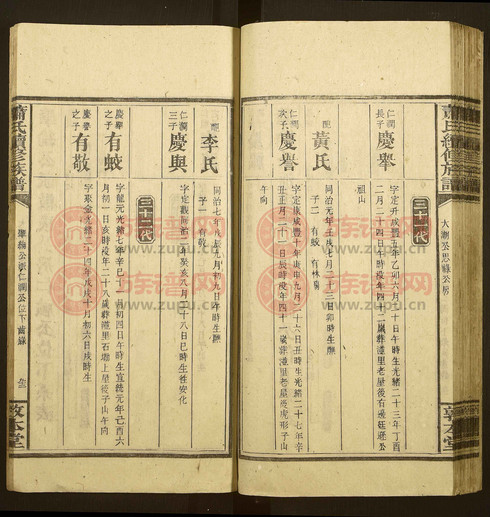 蕭氏續修族譜
大淵公思祿公房
敦本堂
三十代
仁潤長子
慶舉
字定升咸豐五年乙卯六月三十日午時生光緒二十三年丁酉
二月二十四日午時歿年四十二歲葬灘里老屋後右邊廷遜公
祖山
配
黃氏
同治元年壬戌七月二十三日卯時生醮
子二 有蛟 有林
仁潤次子
慶譽
字定康咸豐十年庚申九月二十六日丑時生光緒二十七年辛
丑正月二十二日辰時歿年四十一歲葬灘里老屋後虎形子山
午向
配
李氏
同治七年戊辰九月初九日午時生醮
子一 有敬
仁潤三子
慶興
字定歡同治二年癸亥八月二十八日巳時生性安化
三十一代
慶舉之子
有蛟
字龍元光緒七年辛巳十二月初四日午時生宣統元年己酉六
月初一日亥時歿年二十八歲葬灘里石壩上屋後子山午向
慶譽之子
有敬
字東金光緒二十四年戊戌十月初六日戌時生
公位下舊緣
蕭氏續修族譜
敦本堂
东京网
www.zupu.cn